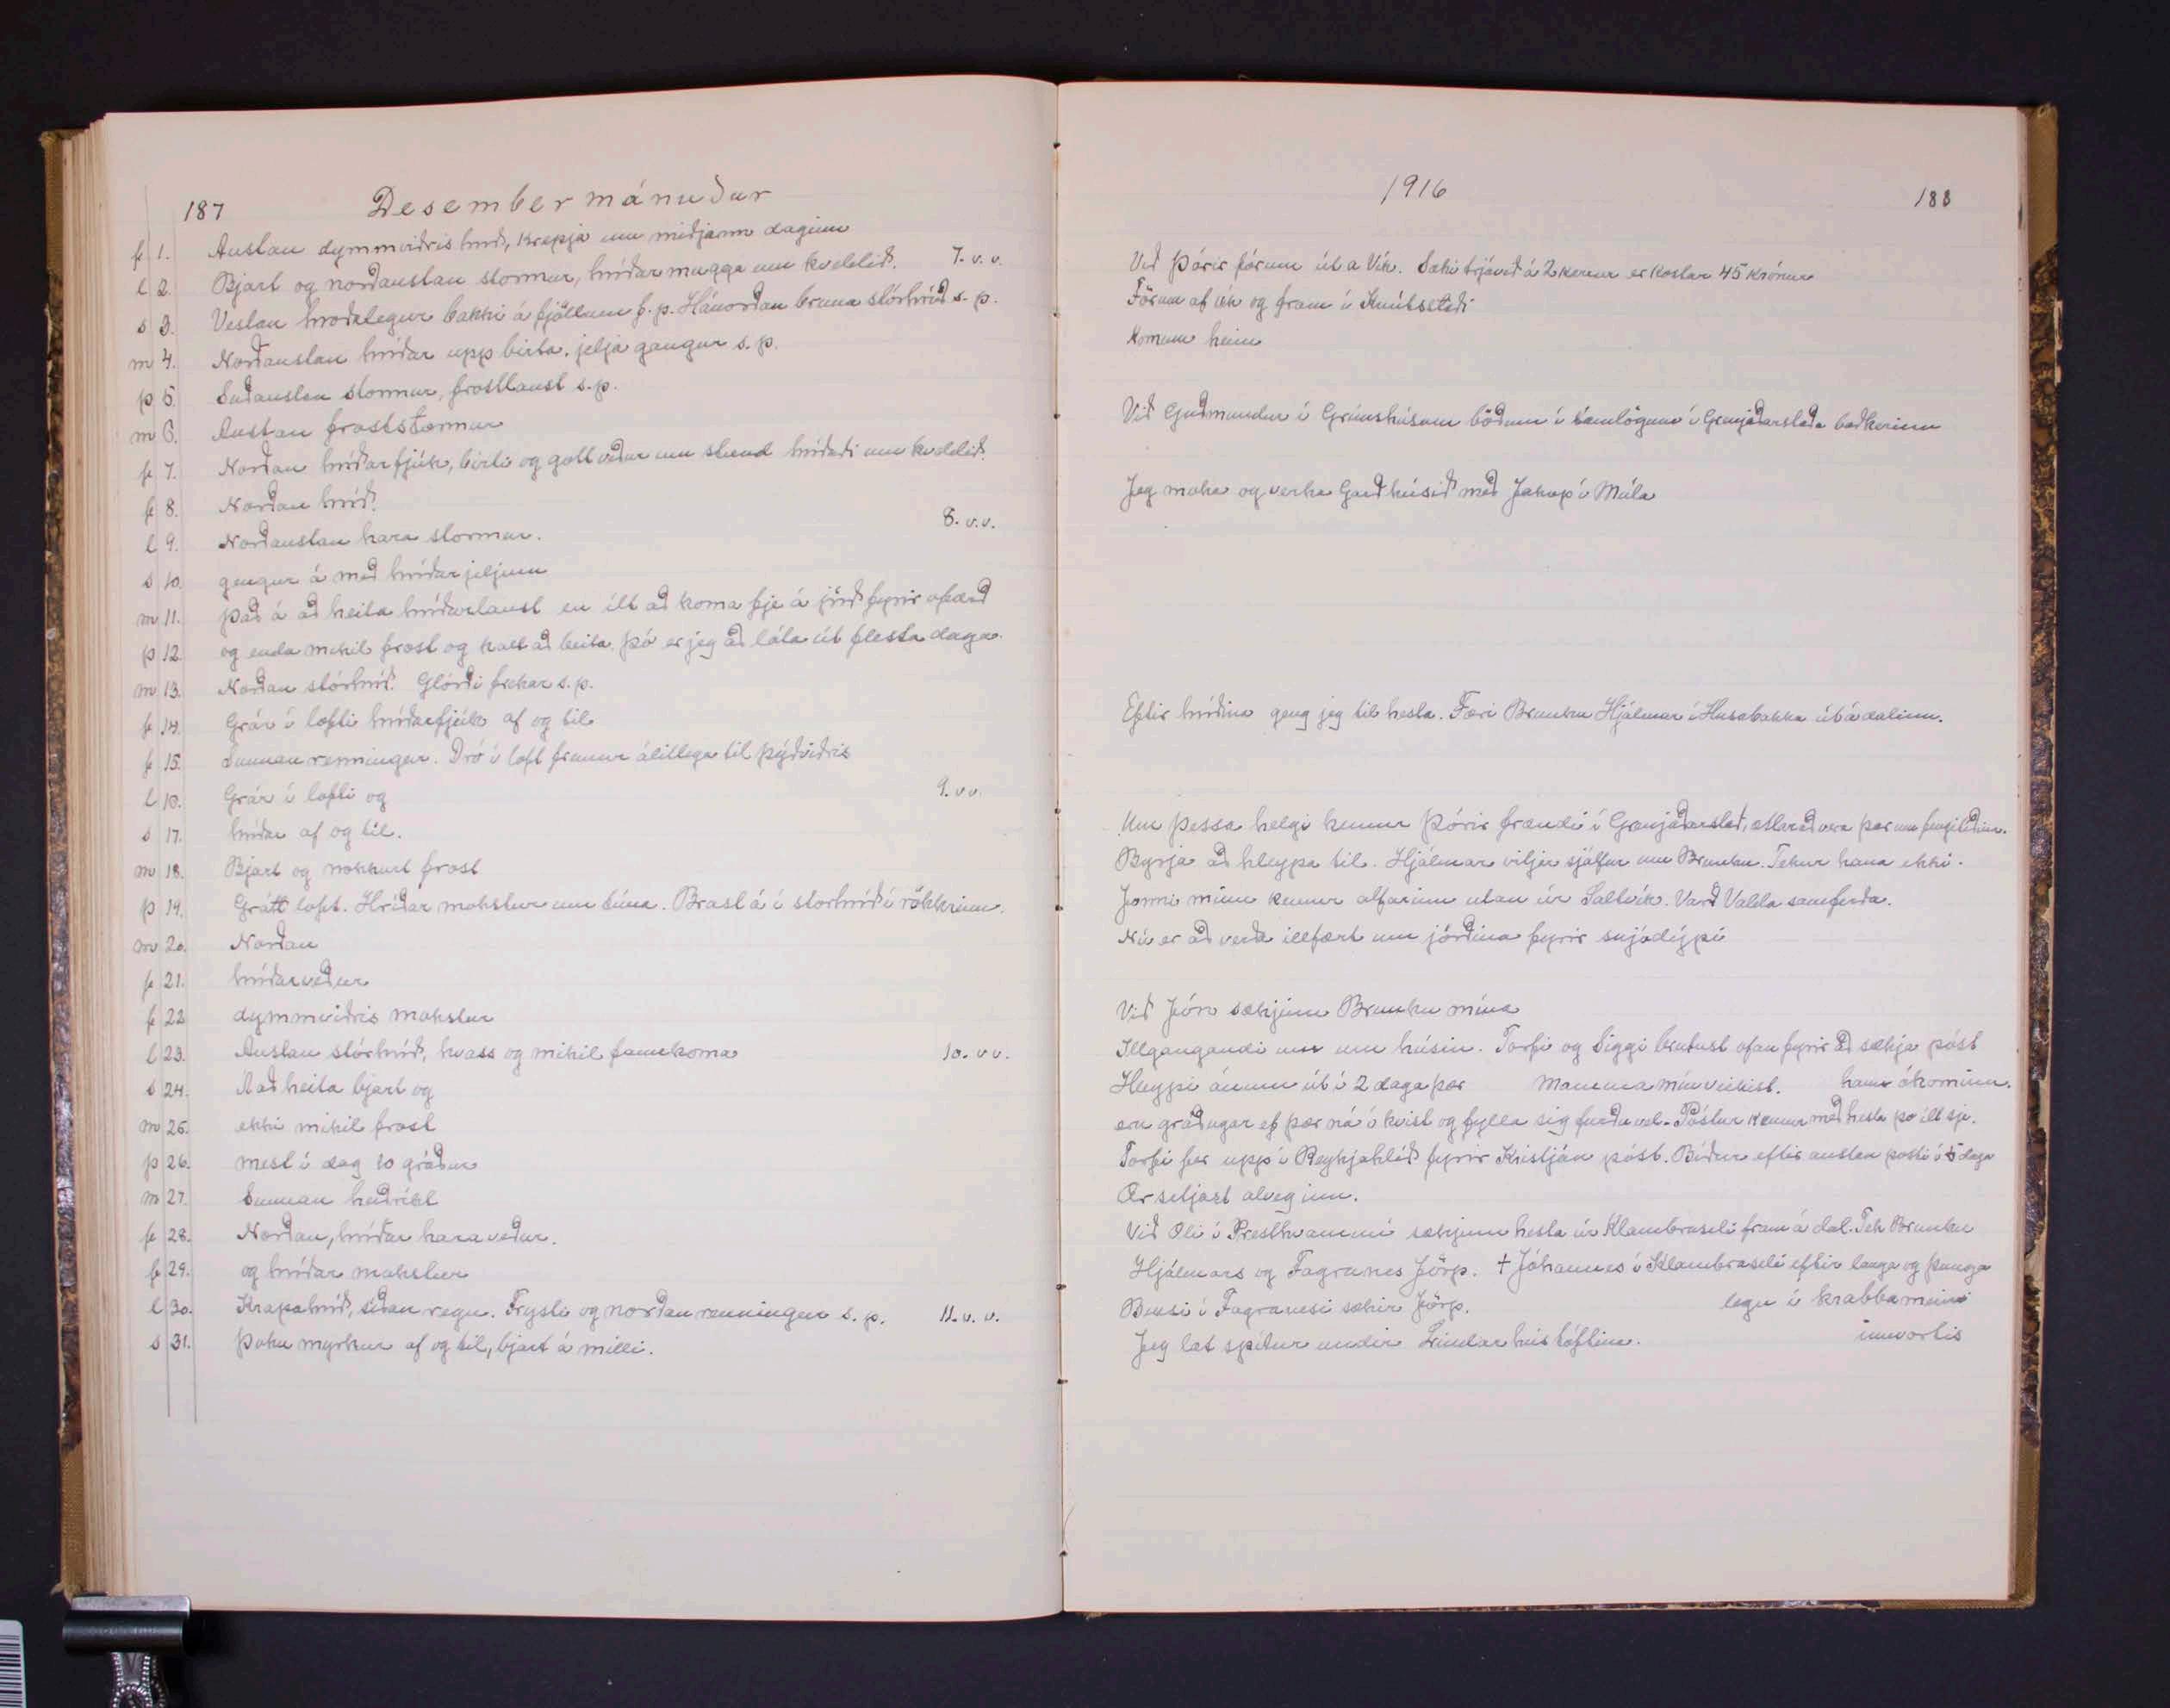 187 Desember mánuður
f 1. Austan dymmviðris hríð, krapja um miðjann daginn
l 2. Bjart og norðaustan stormur, hríðar mugga um kveldið. 7. v. v.
s 3. Vestan hroðalegur bakki á fjöllum f. p. Hánorðan bruna stórhríð s. p.
m 4. Norðaustan hríðar upp birta, jelja gangur s. p.
þ 5. Suðaustan stormur, frostlaust s. p.
m 6. Austan froststormur
f 7. Norðan hríðarfjúk, birti og gott veður um stund hríðaði um kveldið.
f 8. Norðan hríð.
l 9. Norðaustan hara stormur. 8. v.v.
s 10. gengur á með hríðarjeljum
m 11. það á að heita hríðarlaust en illt að koma fje á jörð fyrir ofærð
þ 12. og enda mikil frost og kalt að beita þó er jeg að láta út flesta daga
m 13. Norðan stórhríð. Glórði frekar s. p.
f 14. Grár í lofti hríðarfjúk af og til
f 15. Sunnan renningur. Dró í loft fremur álitlega til þýðviðris
l 16. Grár í lofti og 9. v v.
s 17. hríðar af og til.
m 18. Bjart og nokkurt frost
þ 19. Grátt loft. Hríðar mokstur um túna. Brast á í stórhríð í rökkrinu.
m 20. Norðan
f 21. hríðarveður
f 22 dymmviðris mokstur
l 23. Austan stórhríð, hvass og mikil fannkoma 10. v v.
s 24. Á að heita bjart og
m 25. ekki mikil frost
þ 26. mest í dag 10 gráður
m 27. Sunnan heiðríkt
f 28. Norðan, hríðar hara veður.
f 29. og hríðar mokstur
l 30. Krapahríð, síðan regn. Frysti og norðan renningur s. p. 11. v. v.
s 31. Þoku myrkur af og til, bjart á milli.
1916 188
Við Þórir fórum út a Vík. Sæki trjávið á 2 kerrur er kostar 45 krónur
Förum af vík og fram í Knútsstaði
Komum heim
Við Guðmundur í Grímshúsum böðum í sámlögum í Grenjaðarstaða baðkerinu
Jeg moka og verka Garðhúsið með Jakop í Múla
Eptir hríðina geng jeg til hesta. Færi Brunku Hjálmar í Husabakka út á dalinn.
Um þessa helgi kemur Þórir frændi í Grenjaðarstað, ætlar að vera þar um fengitíðina.
Byrja að hleypa til. Hjálmar viljer sjálfur um Brunku. Tekur hana ekki.
Jonni minn kemur alfarinn utan úr Saltvík. Varð Valda samferða.
Nú er að verða illfært um jörðina fyrir snjódýpi
Við Jón sækjum Brunku mína
Illgangandi um um húsin. Torfi og Siggi brutust ofan fyrir að sækja póst
Hleypi ánum út í 2 daga þær Mamma mín veikist. hann ókominn.
eru gráðugar ef þær ná í kvist og fylla sig furða vel. Póstur kemur með hesta þo illt sje.
Torfi fer upp í Reykjahlíð fyrir Kristján póst. Bíður eftir austan pósti í 5 daga
Ær setjast alveg inn.
Við Oli í Presthvammi sækjum hesta úr Klambraseli fram á dal. Tek Brunku
Hjálmars og Fagranes Jörp. † Jóhannes í Klambraseli eftir langa og þunga
Bensi í Fagranesi sækir Jörp. legu í krabbameini
Jeg læt spítur undir Lindarhústóftina. innvortis